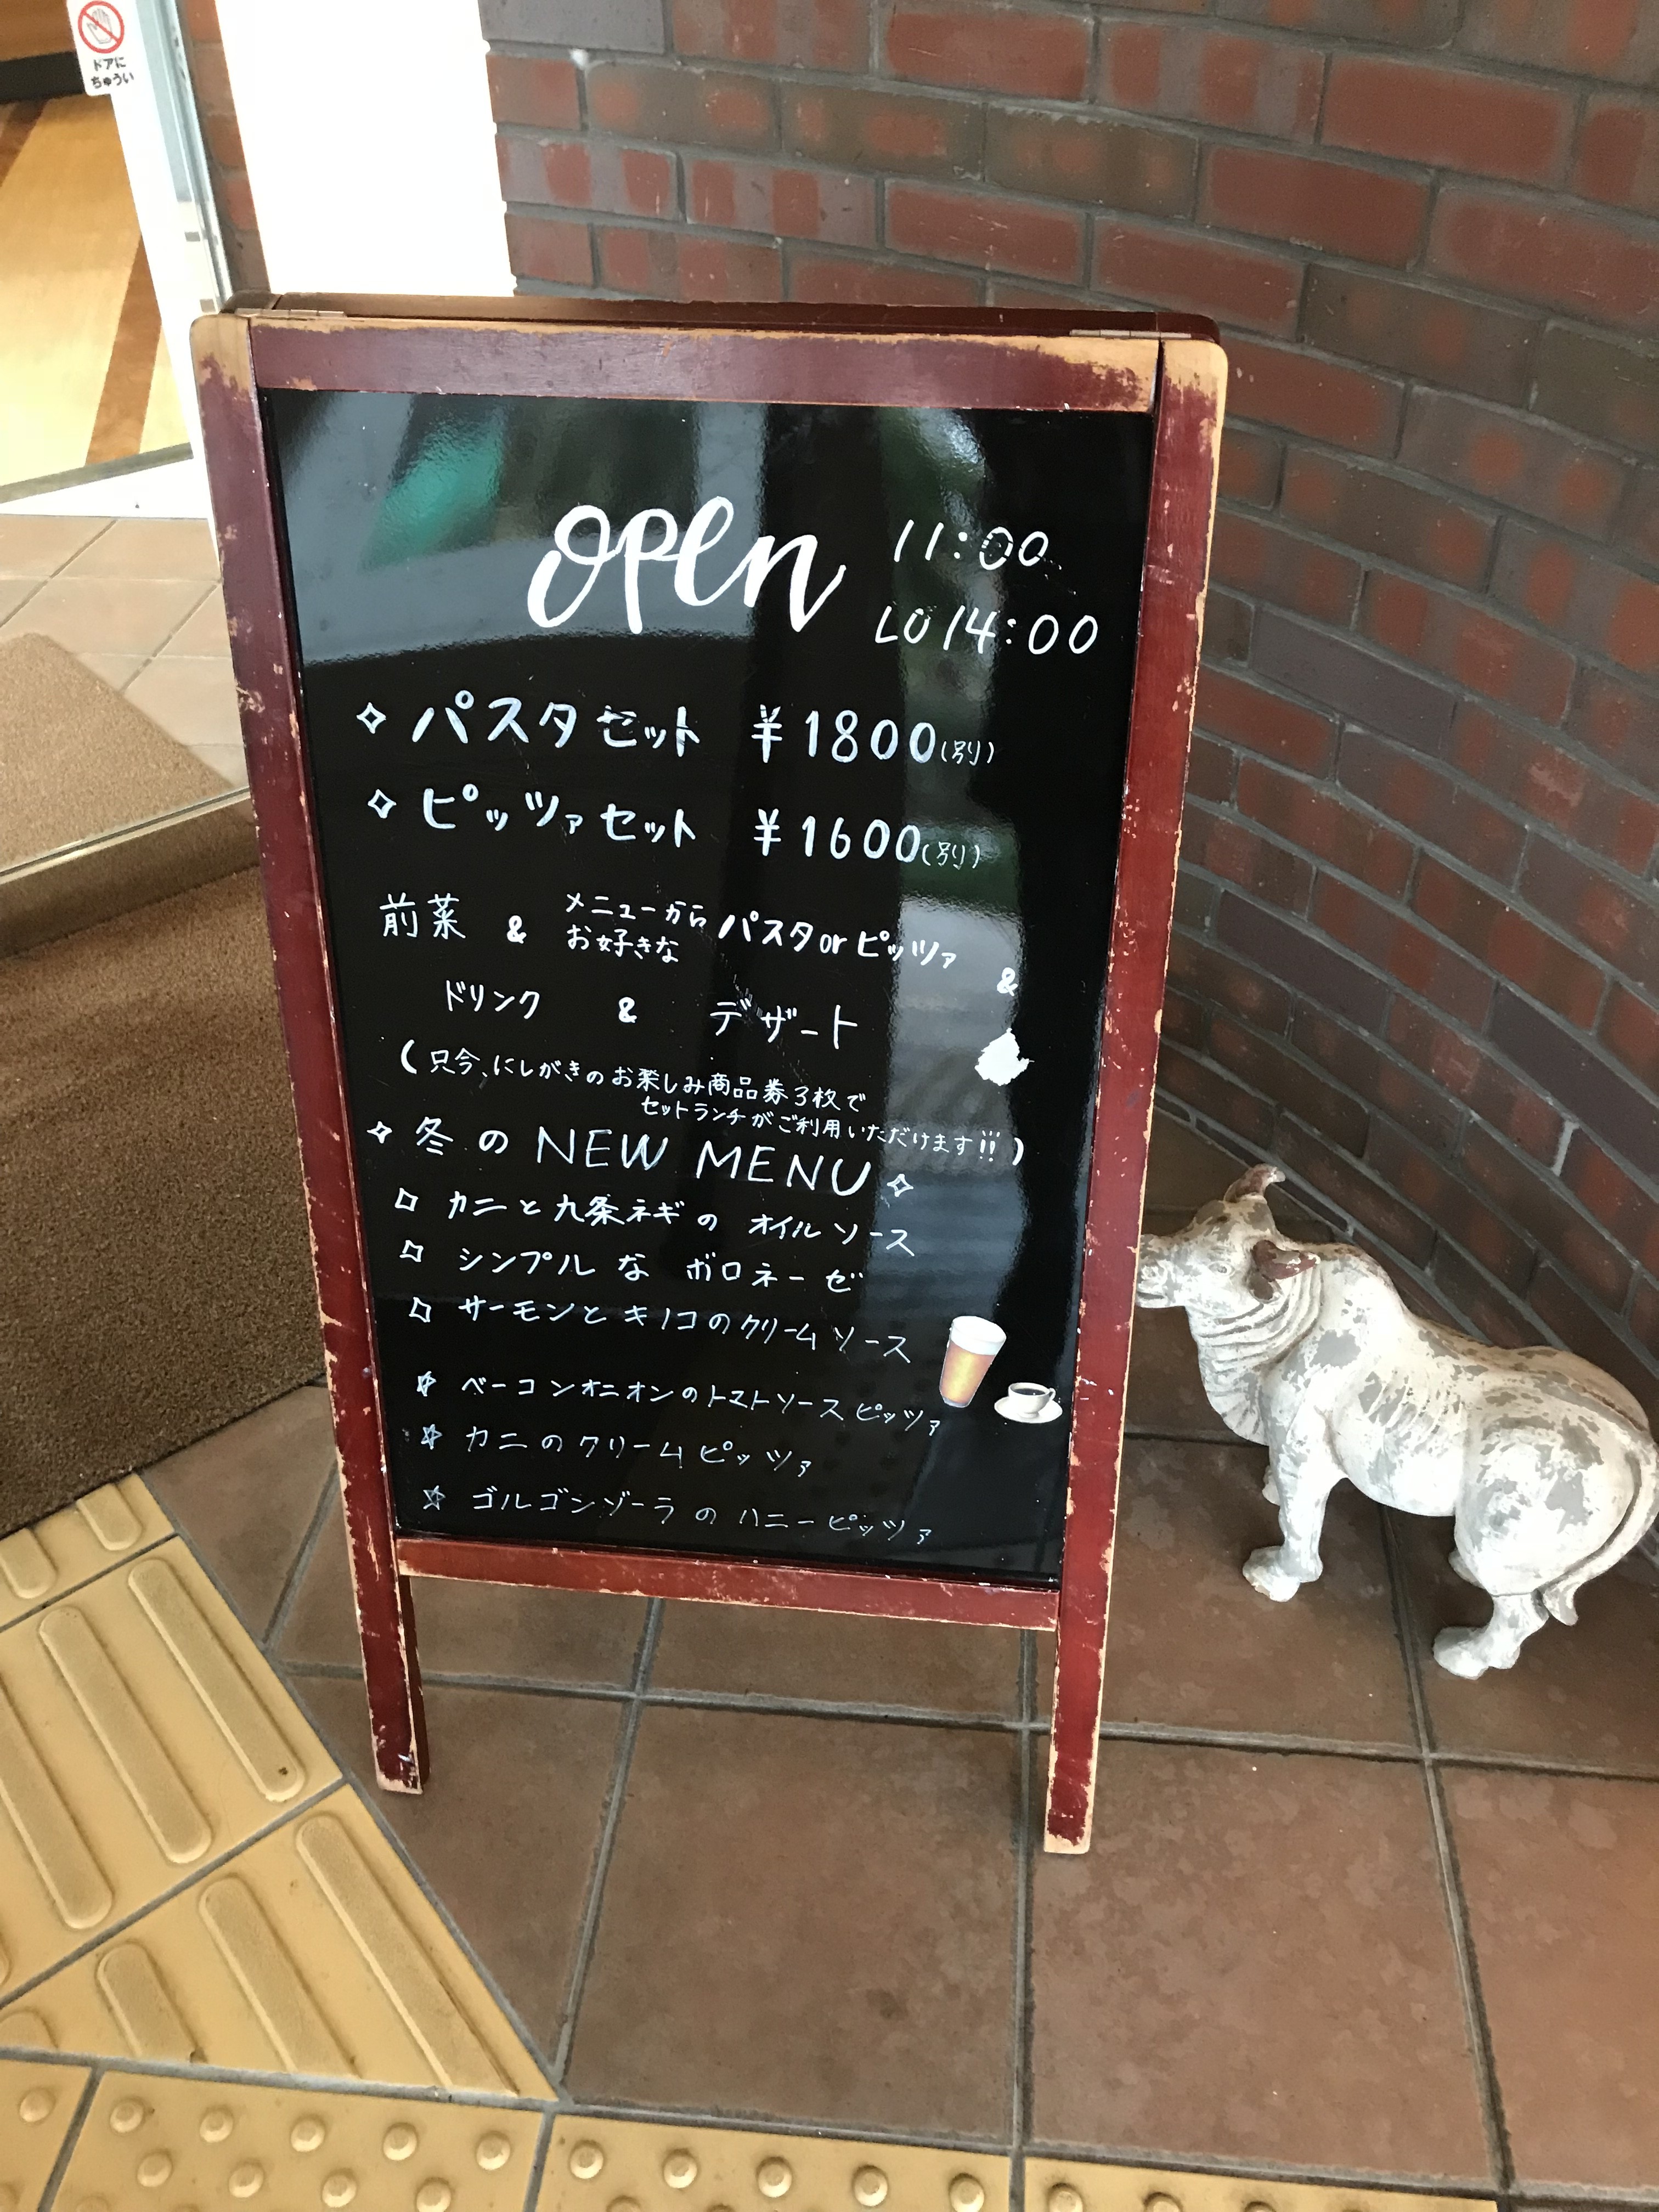 ドアに
ちゅうい
open 11:00
LO 14:00
パスタセット ¥1800(別)
ピッツァセット ¥1600(別)
前菜 & メニューから
お好きな パスタorピッツァ &
ドリンク & デザート
(只今、にしがきのお楽しみ商品券3枚で
セットランチがご利用いただけます!!!)
冬のNEW MENU
カニと九条ネギのオイルソース
シンプルなボロネーゼ
サーモンとキノコのクリームソース
ベーコンオニオンのトマトソースピッツァ
カニのクリームピッツァ
ゴルゴンゾーラのハニーピッツァ